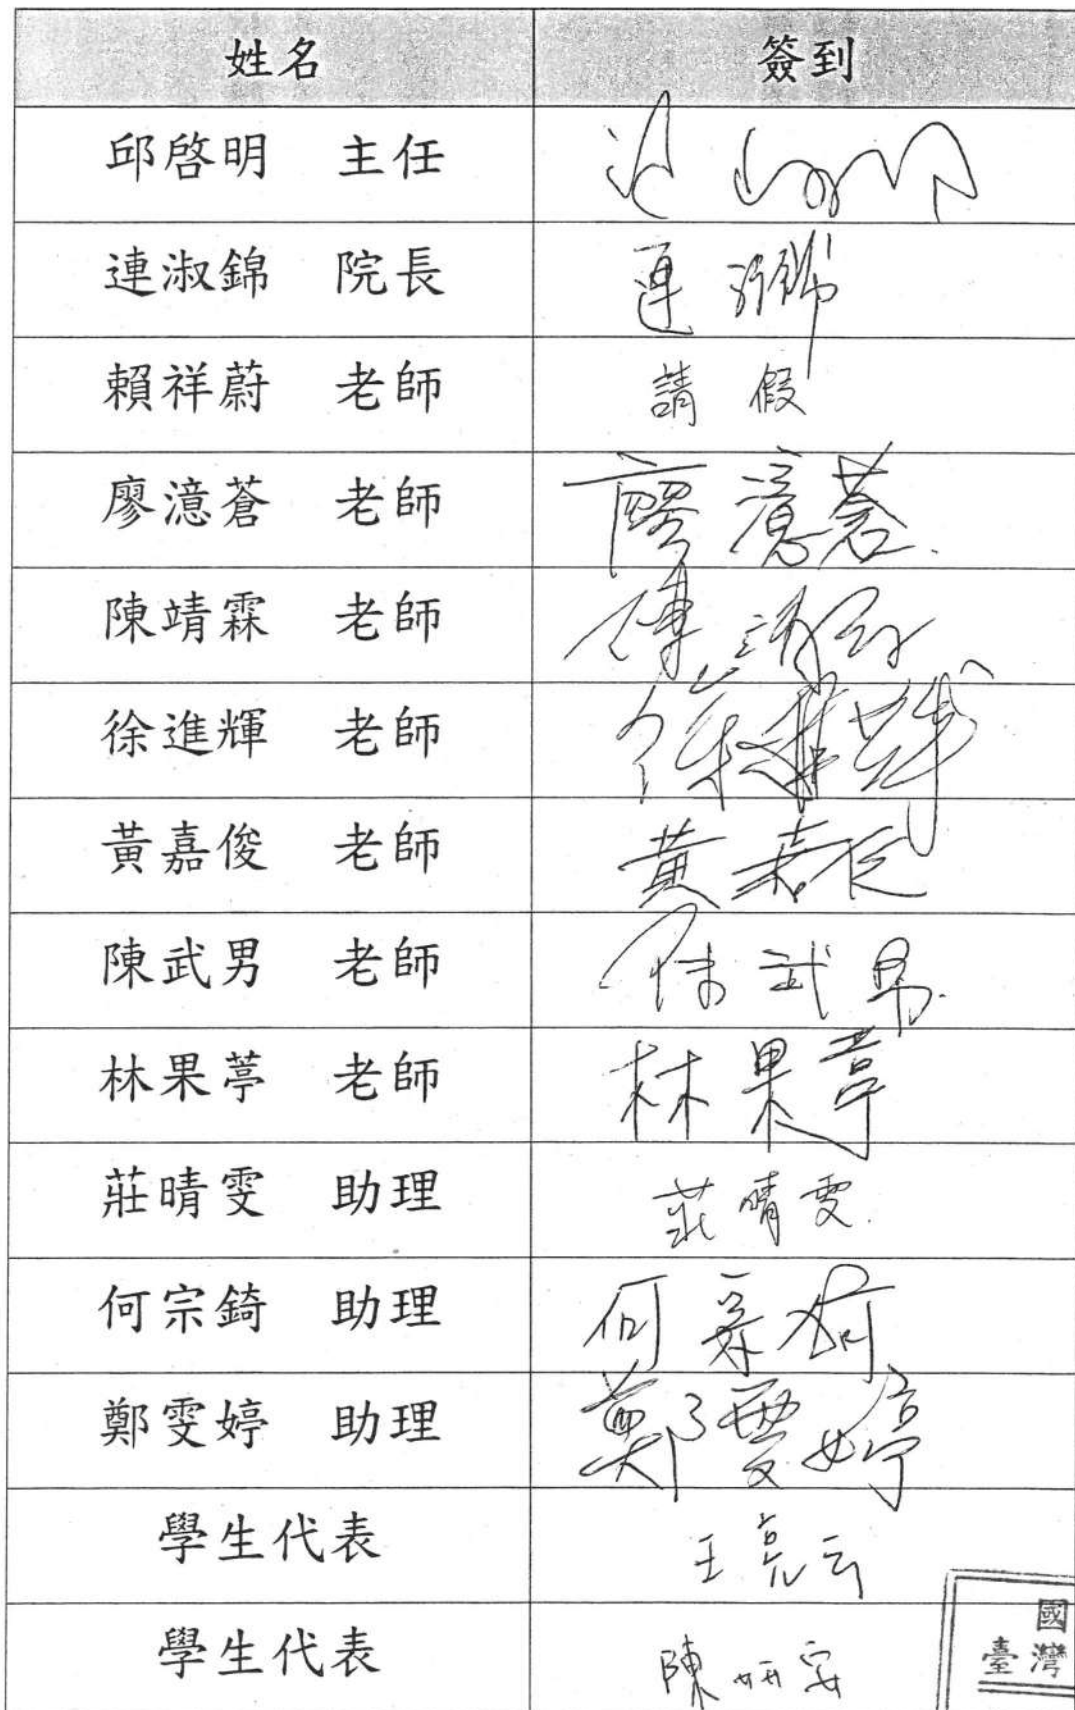 姓名 簽到
邱啓明 主任
連淑錦 院長 連淑錦
賴祥蔚 老師 請假
廖澺蒼 老師 廖澺蒼
陳靖霖 老師 陳靖
徐進輝 老師 徐進輝
黃嘉俊 老師 黃嘉俊
陳武男 老師 陳武男
林果葶 老師 林果葶
莊晴雯 助理 莊晴雯
何宗錡 助理 何宗錡
鄭雯婷 助理 鄭雯婷
學生代表 王亮云
學生代表 陳妍安
國
臺灣